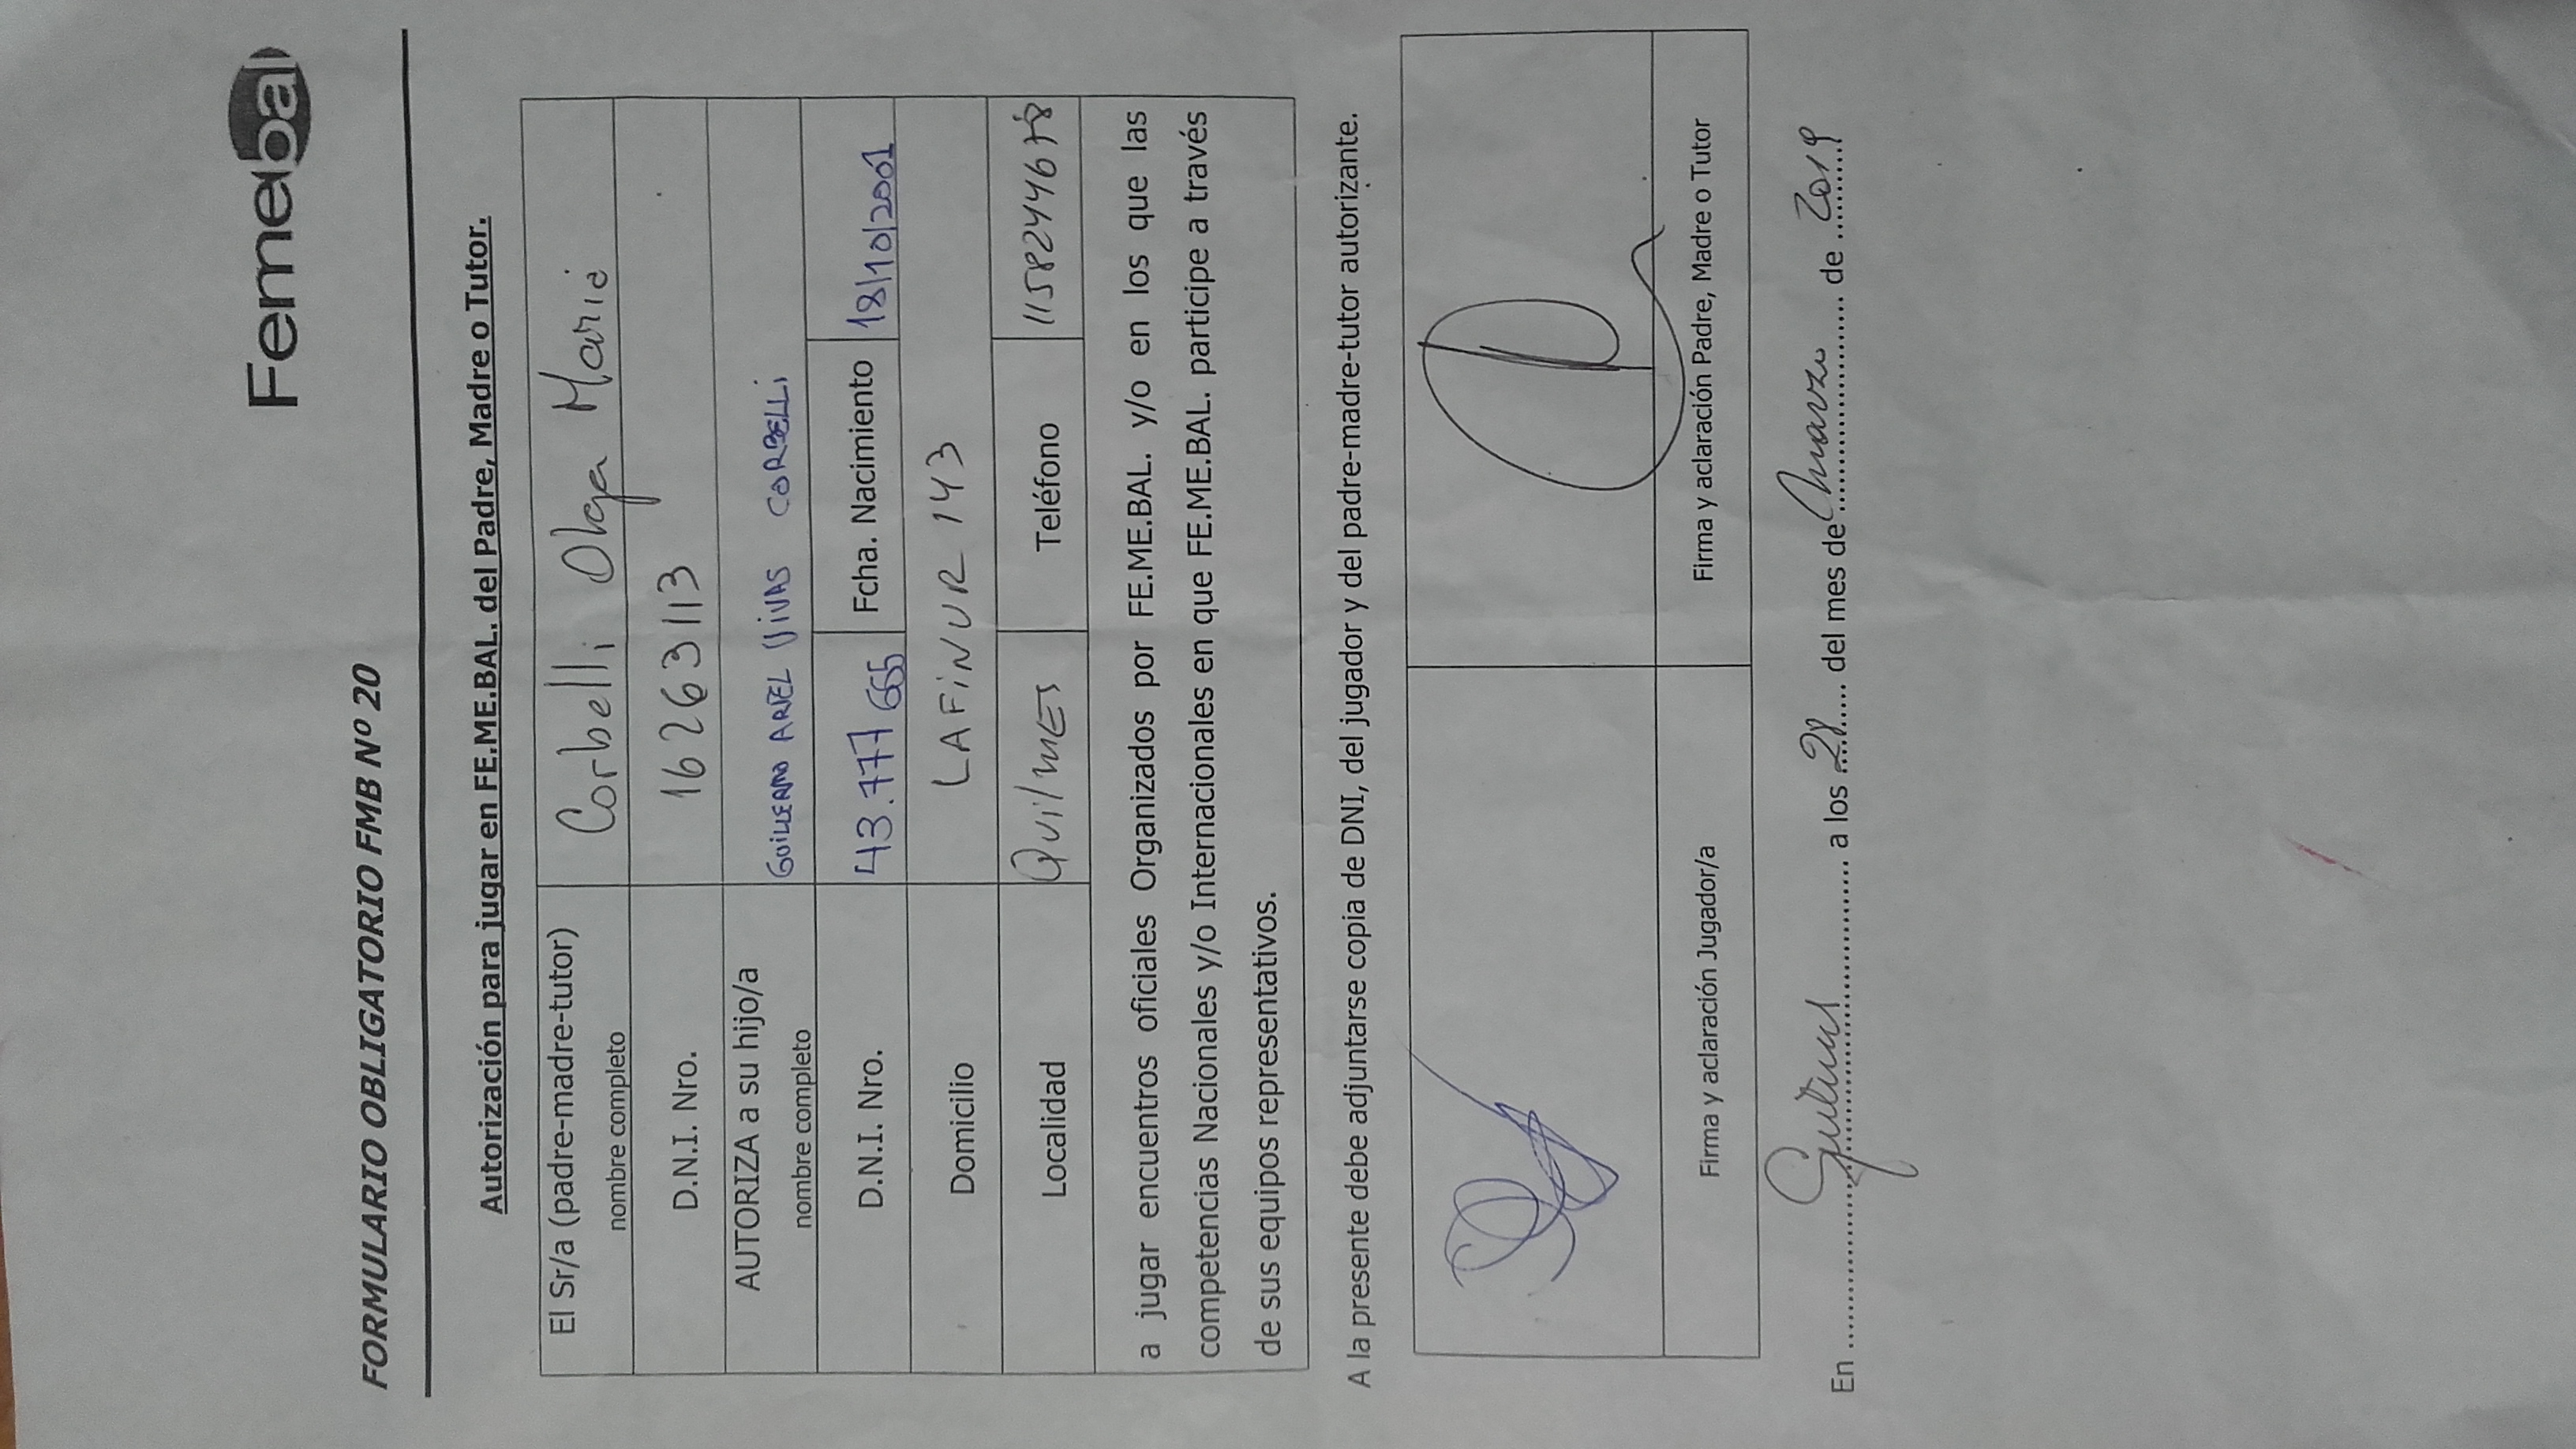 Femebal
FORMULARIO OBLIGATORIO FMB Nº 20
Autorización para jugar en FE.ME.BAL. del Padre, Madre o Tutor.
El Sr/a (padre-madre-tutor) nombre completo Corbelli Olga Maria
D.N.I. Nro. 16263113
AUTORIZA a su hijo/a nombre completo GUILLERMO ARIEL VIVAS CORBELLI
D.N.I. Nro. 43.777 665 Fcha. Nacimiento 18/10/2001
Domicilio LAFINUR 143
Localidad Quilmes Teléfono 1158244678
a jugar encuentros oficiales Organizados por FE.ME.BAL. y/o en los que las
competencias Nacionales y/o Internacionales en que FE.ME.BAL. participe a través
de sus equipos representativos.
A la presente debe adjuntarse copia de DNI, del jugador y del padre-madre-tutor autorizante.
Firma y aclaración Jugador/a Firma y aclaración Padre, Madre o Tutor
En Quilmes a los 28 del mes de Marzo de 2019